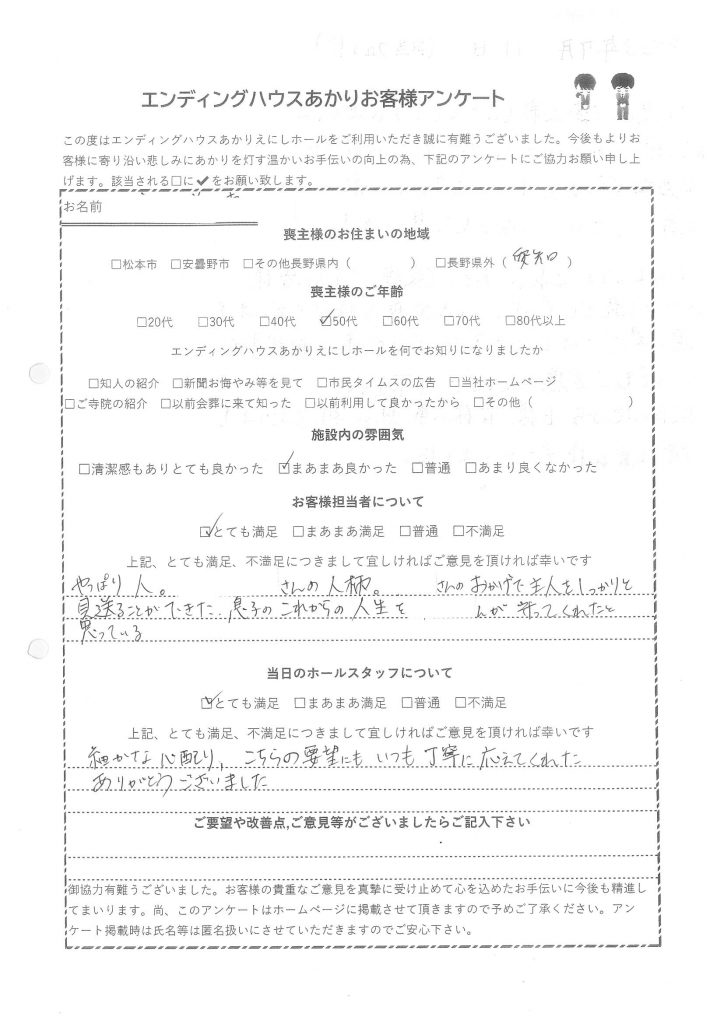 エンディングハウスあかりお客様アンケート
この度はエンディングハウスあかりえにしホールをご利用いただき誠に有難うございました。今後もよりお
客様に寄り沿い悲しみにあかりを灯す温かいお手伝いの向上の為、下記のアンケートにご協力お願い申し上
げます。該当される□に✔をお願い致します。
お名前
喪主様のお住まいの地域
□松本市 □安曇野市 □その他長野県内（ ） □長野県外（愛知）
喪主様のご年齢
□20代 □30代 □40代 ☑50代 □60代 □70代 □80代以上
エンディングハウスあかりえにしホールを何でお知りになりましたか
□知人の紹介 □新聞お悔やみ等を見て □市民タイムスの広告 □当社ホームページ
□ご寺院の紹介 □以前会葬に来て知った □以前利用して良かったから □その他（ ）
施設内の雰囲気
□清潔感もありとても良かった ☑まあまあ良かった □普通 □あまり良くなかった
お客様担当者について
☑とても満足 □まあまあ満足 □普通 □不満足
上記、とても満足、不満足につきまして宜しければご意見を頂ければ幸いです
やっぱり人。 さんの人柄。 さんのおかげで主人をしっかりと
見送ることができた。息子のこれからの人生を んが守ってくれたと
思っている
当日のホールスタッフについて
☑とても満足 □まあまあ満足 □普通 □不満足
上記、とても満足、不満足につきまして宜しければご意見を頂ければ幸いです
細かな心配り、こちらの要望にもいつも丁寧に応えてくれた
ありがとうございました
ご要望や改善点,ご意見等がございましたらご記入下さい
御協力有難うございました。お客様の貴重なご意見を真摯に受け止めて心を込めたお手伝いに今後も精進し
てまいります。尚、このアンケートはホームページに掲載させて頂きますので予めご了承ください。アン
ケート掲載時は氏名等は匿名扱いにさせていただきますのでご安心下さい。